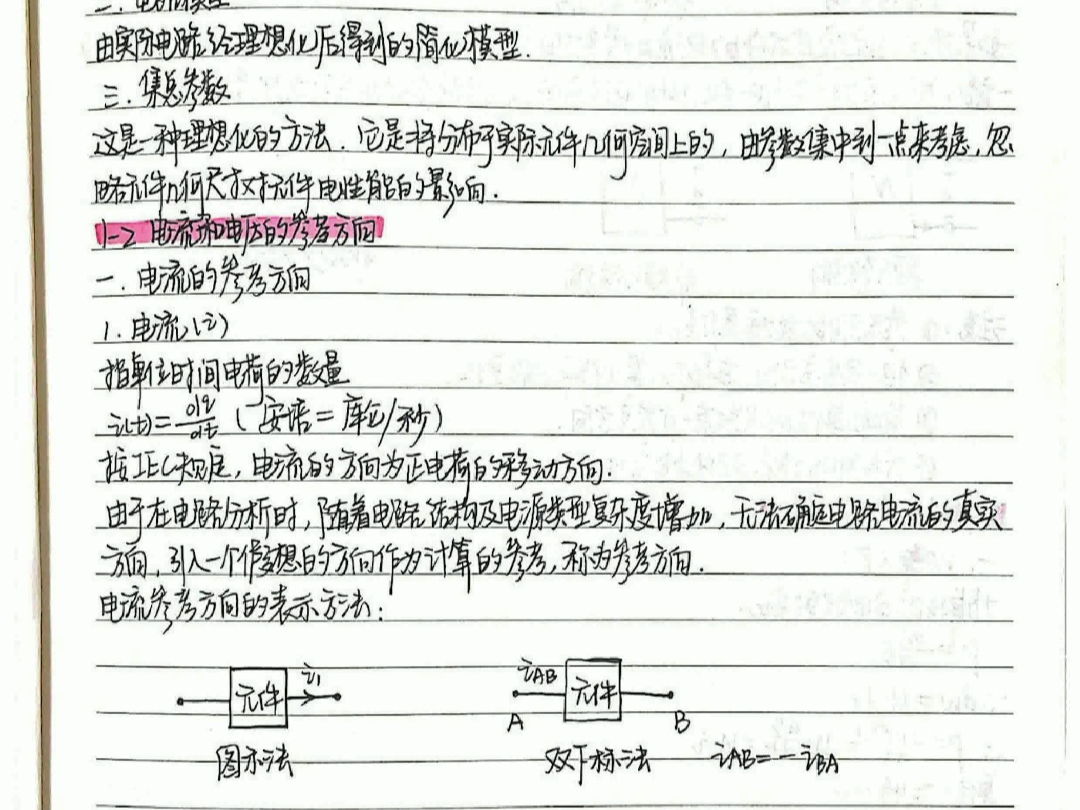 二. 电路模型
由实际电路经理想化后得到的简化模型.
三. 集总参数
这是一种理想化的方法. 它是将分布于实际元件几何空间上的, 由参数集中到一点来考虑, 忽
略元件几何尺寸对元件电性能的影响.
1-2 电流和电压的参考方向
一. 电流的参考方向
1. 电流(i)
指单位时间电荷的数量
i(t)=dq/dt (安培=库仑/秒)
按IEC规定, 电流的方向为正电荷的移动方向.
由于在电路分析时, 随着电路结构及电源类型复杂度增加, 无法确定电路电流的真实
方向, 引入一个假想的方向作为计算的参考, 称为参考方向.
电流参考方向的表示方法:
元件 i₁
i_AB 元件
A B
图示法 双下标法 i_AB=-i_BA